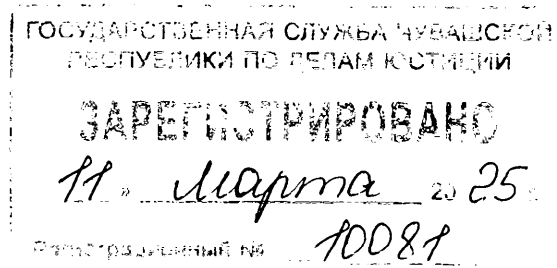 ГОСУДАРСТВЕННАЯ СЛУЖБА ЧУВАШСКОЙ
РЕСПУБЛИКИ ПО ДЕЛАМ ЮСТИЦИИ
ЗАРЕГИСТРИРОВАНО
11 » марта 20 25 г.
Регистрационный № 10081